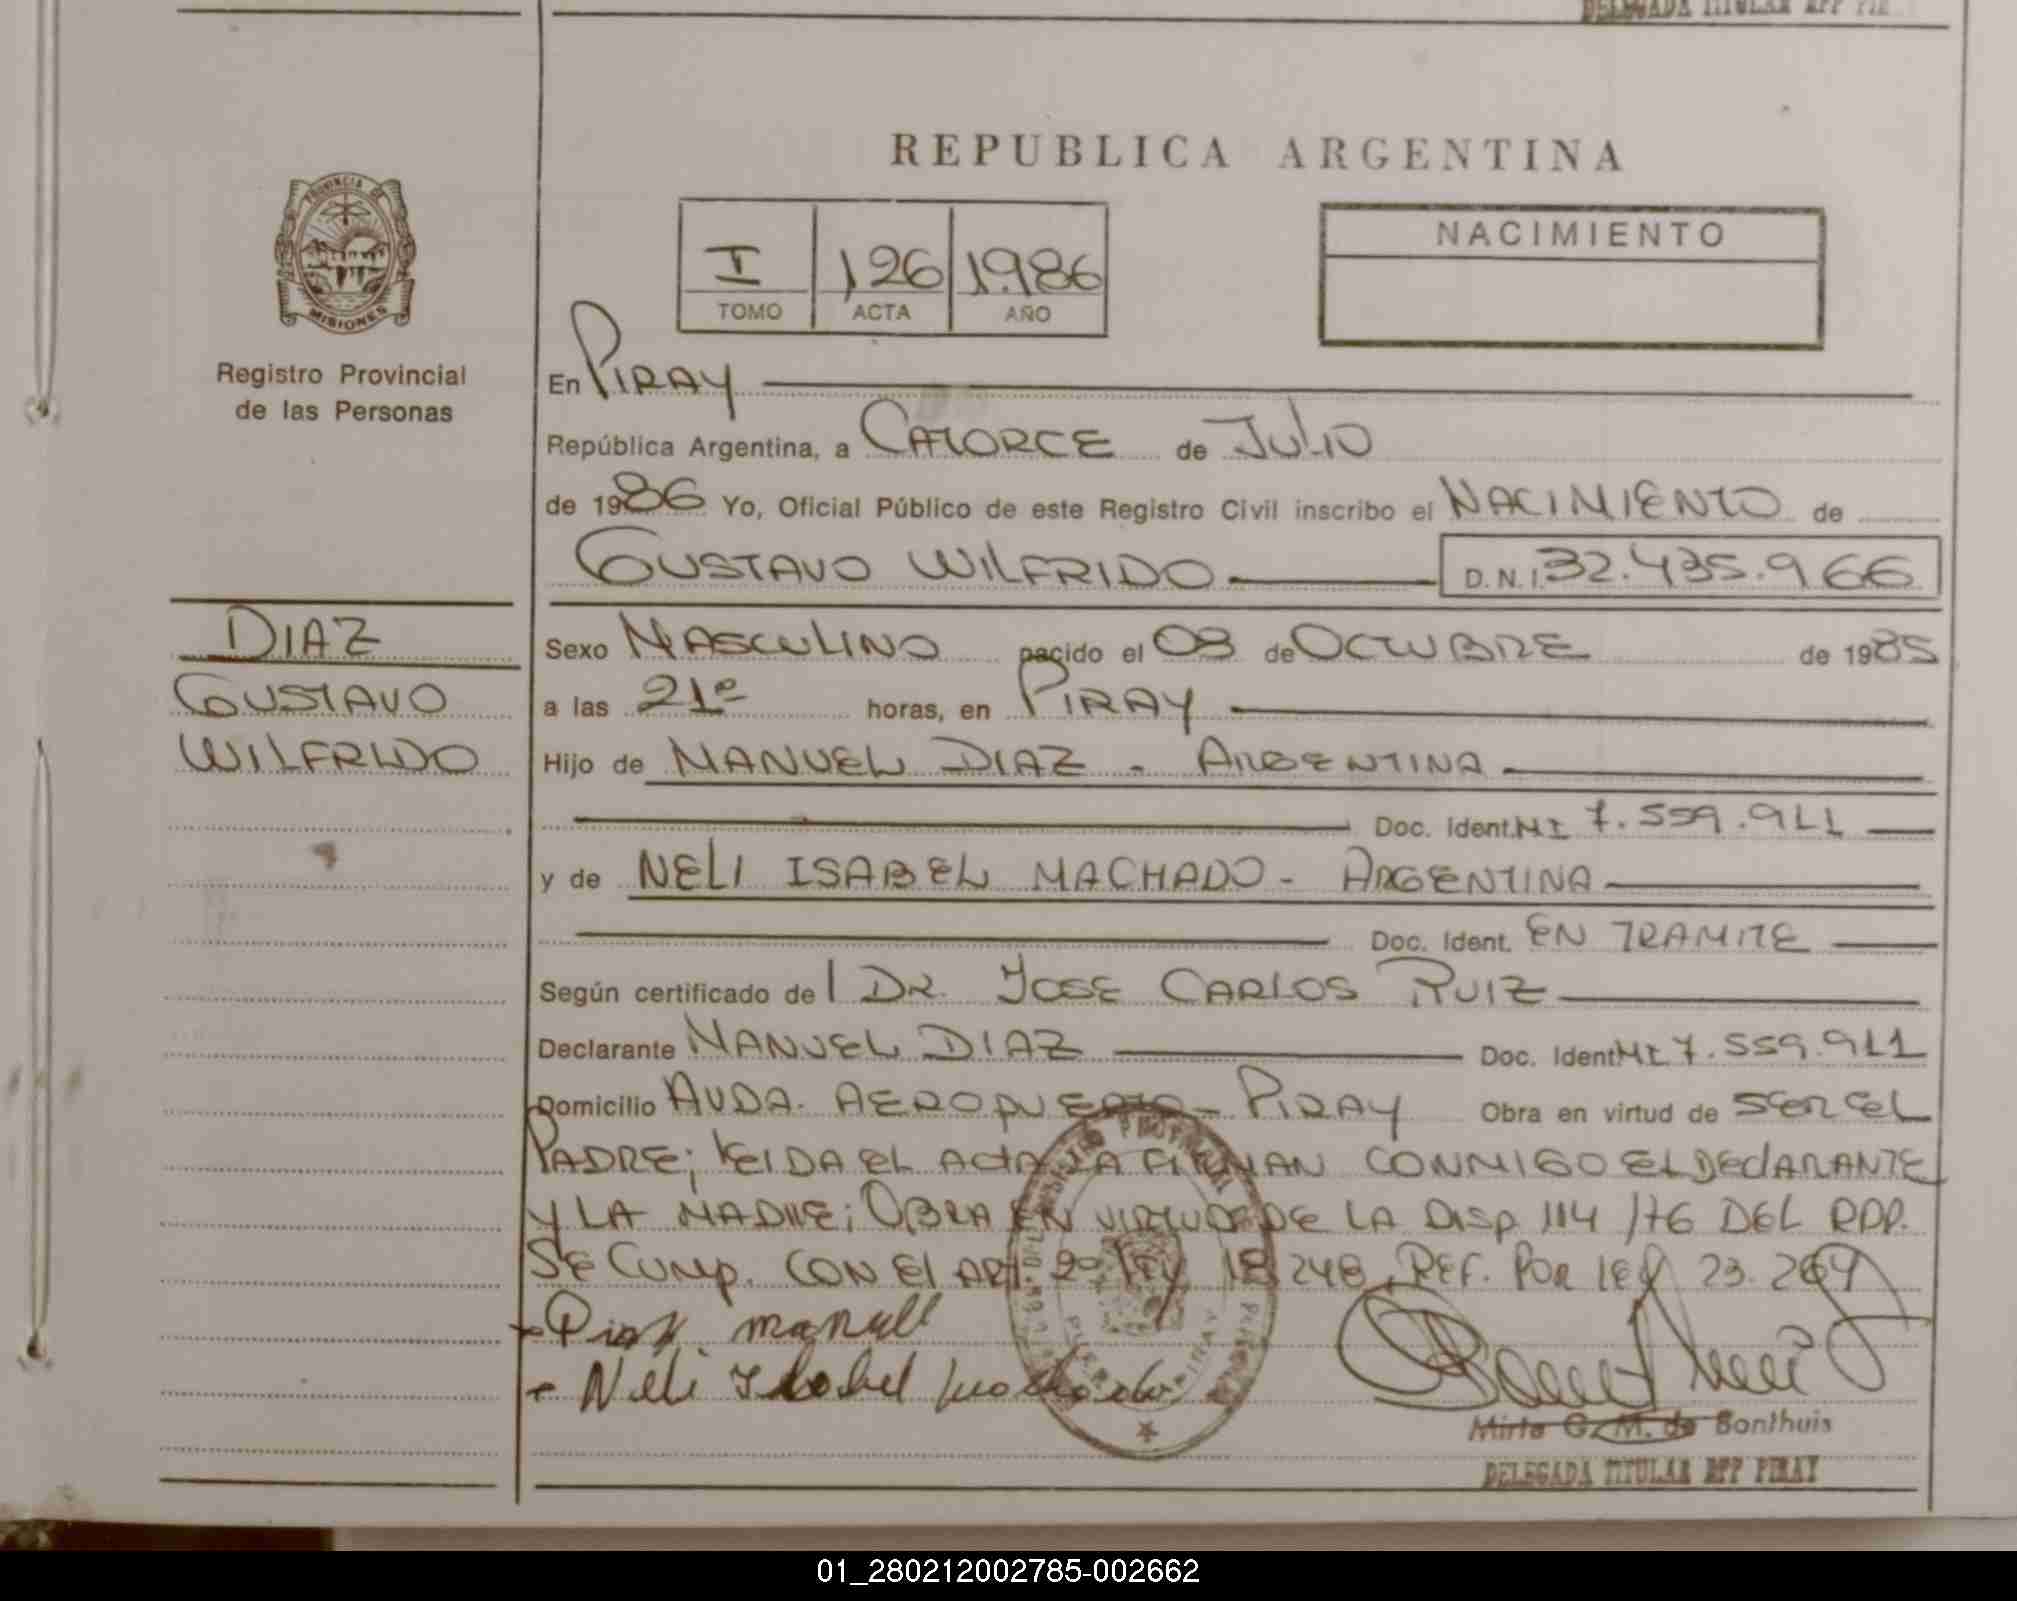 DELEGADA TITULAR RPP PIR
REPUBLICA ARGENTINA
PROVINCIA DE
MISIONES
Registro Provincial
de las Personas
I 126 1986
TOMO ACTA AÑO
NACIMIENTO
En PIRAY
República Argentina, a CATORCE de JULIO
de 1986 Yo, Oficial Público de este Registro Civil inscribo el NACIMIENTO de
GUSTAVO WILFRIDO D.N.I. 32.435.966
DIAZ
GUSTAVO
WILFRIDO
Sexo MASCULINO nacido el 08 de OCTUBRE de 1985
a las 21º horas, en PIRAY
Hijo de MANUEL DIAZ - ARGENTINA
Doc. Ident. MI 7.559.911
y de NELI ISABEL MACHADO - ARGENTINA
Doc. Ident. EN TRAMITE
Según certificado del DR. JOSE CARLOS RUIZ
Declarante MANUEL DIAZ Doc. Ident MI 7.559.911
Domicilio AVDA. AEROPUERTO - PIRAY Obra en virtud de SER EL
PADRE; LEIDA EL ACTA LA FIRMAN CONMIGO EL DECLARANTE
Y LA MADRE; OBRA EN VIRTUD DE LA DISP. 114/76 DEL RPP.
SE CUMP. CON EL ART. 2º LEY 18.248, REF. POR LEY 23.264
- Diaz manuel
- Neli Isabel machado
Mirta G. M. de Bonthuis
DELEGADA TITULAR RPP PIRAY
01_280212002785-002662